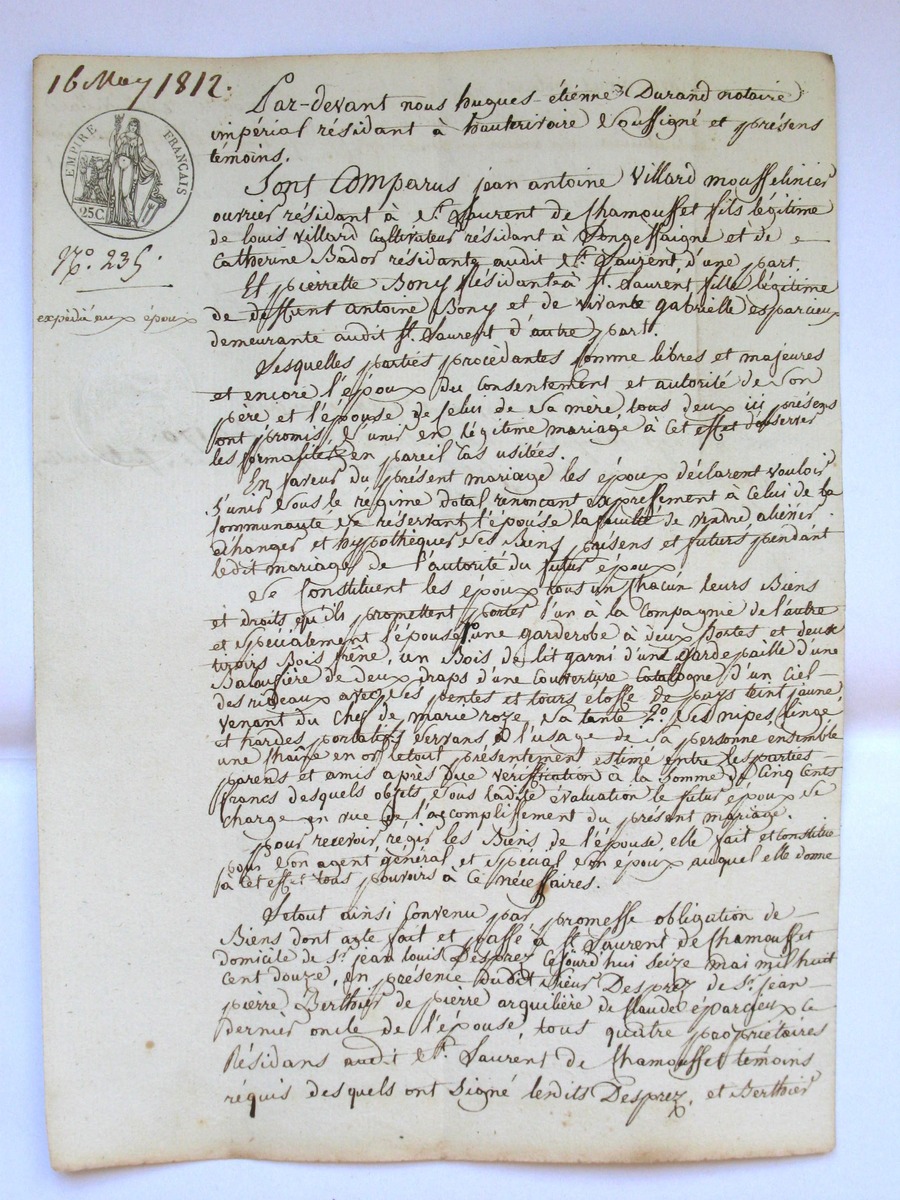 16 May 1812.
EMPIRE FRANÇAIS
25C.
N.º 235.
expédié aux époux
Par-devant nous hugues-étienne Durand notaire
impérial résidant à hauterivoire soussigné et présens
témoins.
Sont Comparus jean antoine Villard mousselinier
ouvrier résidant à St. Laurent de Chamousset fils légitime
de louis Villard Cultivateur résidant à Longessaigne et de
Catherine Bador résidante audit St. Laurent, d'une part.
Et pierrette Bony Résidante à St. Laurent fille légitime
de deffunt antoine Bony et de vivante gabrielle esparcieux
demeurante audit St. Laurent d'autre part.
Lesquelles parties procèdantes Comme libres et majeures
et encore l'époux du Consentement et autorité de Son
père et l'épouse de Celui de Sa mère tous deux ici présens
ont promis S'unir en légitime mariage à Cet effet d'observer
les formalités en pareil Cas usitées.
En faveur du présent mariage les époux déclarent vouloir
S'unir Sous le régime dotal renoncant expressément à Celui de la
Communauté Se réservant l'épouse la faculté de vendre aliéner
échanger et hypothéquer Ses Biens présens et futurs pendant
ledit mariage de l'autorité du futur époux
Se Constituent les époux tous un Chacun leurs Biens
et droits qu'ils promettent porter l'un à la Compagnie de l'autre
et Spécialement l'épouse 1º une garderobe à deux portes et deux
tiroirs Bois frêne, un Bois de lit garni d'une gardepaille d'une
Baloussière de deux draps d'une Couverture Catalogne d'un Ciel
des rideaux avec Ses pentes et tours etosse de pays teint jaune
venant du Chef de marie roze Sa tante 2º. Ses nipes, linge
et hardes portatifs servans à l'usage de Sa personne ensemble
une Chaîne en or letout présentement estimé entre lesparties
parens et amis après due vérification à la Somme de Cinq Cents
francs desquels objets Sous ladite évaluation le futur époux Se
Charge en vue de l'accomplissement du présent mariage.
pour recevoir, régir les Biens de l'épouse, elle fait et Constitue
pour Son agent général et Spécial Son époux auquel elle donne
à Cet effet tous pouvoirs à Ce nécessaires.
Letout ainsi Convenu par promesse obligation de
Biens dont acte fait et passé à St. Laurent de Chamousset
domicile de Sr. jean louis Desprez Cejourd'hui Seize mai mil huit
Cent douze, en présence dudit Sieur Desprez de Sr. jean
pierre Berthier de pierre arquilière de Claude éparcieux ce
dernier oncle de l'épouse, tous quatre propriétaires
Résidans audit St. Laurent de Chamousset témoins
réquis desquels ont Signé lesdits Desprez, et Berthier